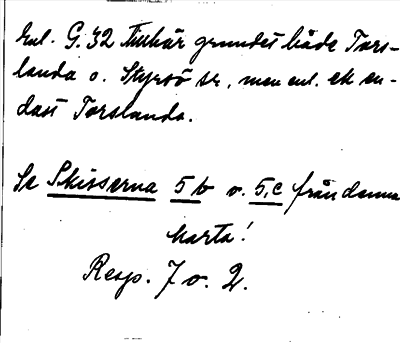 Enl. G. 32 Tinhär grundet både Tors-
landa o. Styrsö sn, men enl. ek en-
dast Torslanda.
Se Skisserna 5 b o. 5, c från denna
karta!
Resp. 7 o. 2.